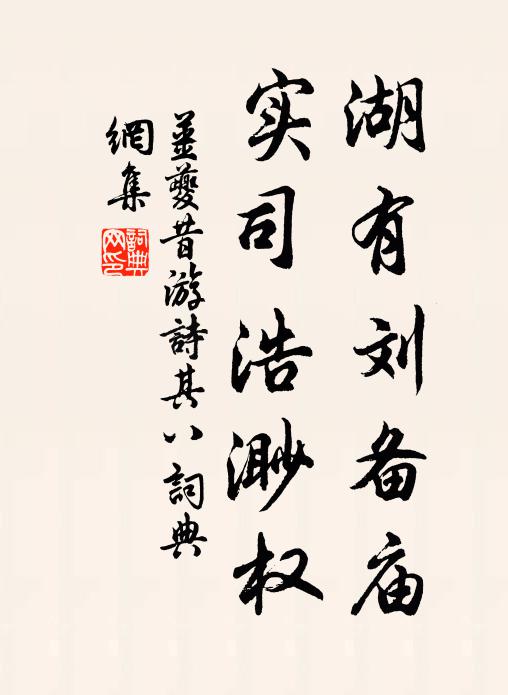 湖有刘备庙
实司浩渺权
姜夔昔游詩其八詞典
網集
詞典网印